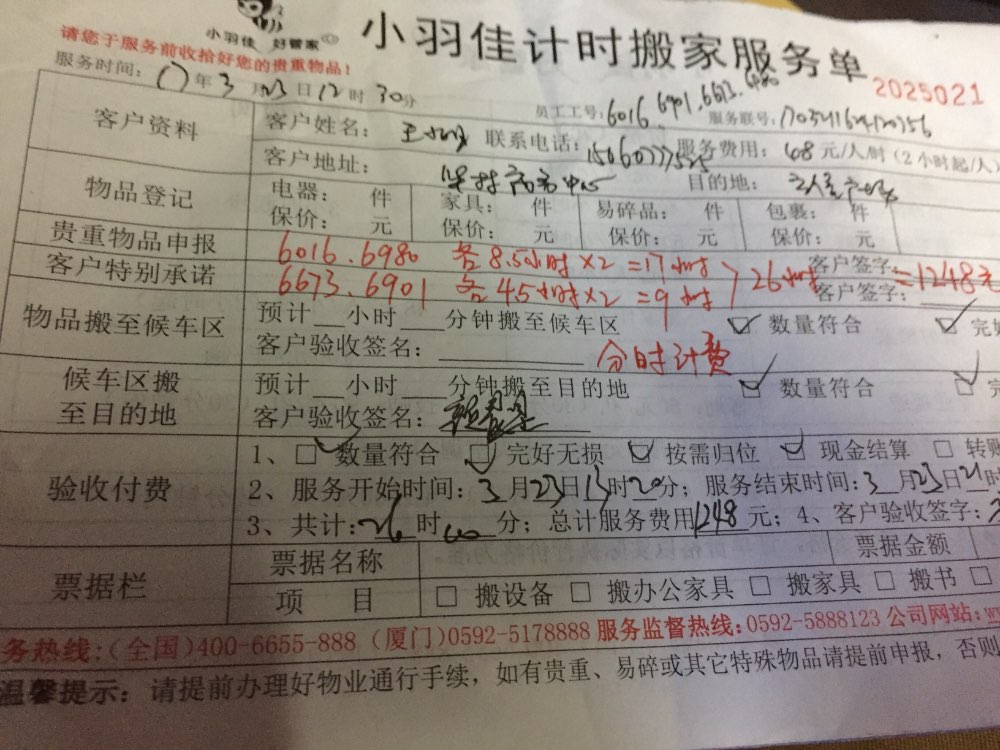 小羽佳 好管家
小羽佳计时搬家服务单
请您于服务前收拾好您的贵重物品！
2025021
服务时间：17年3月23日12时30分
员工工号：6016 6901.6673.6980
服务联号：
客户资料
客户姓名：王 联系电话： 服务费用：48元/人/时（2小时起/人）
客户地址： 商务中心 目的地：
物品登记
电器： 件 家具： 件 易碎品： 件 包裹： 件
保价： 元 保价： 元 保价： 元 保价： 元
贵重物品申报 6016.6980 各8.5小时×2=17小时 客户签字
客户特别承诺 6673.6901 各4.5小时×2=9小时 >26小时 客户签字： =1248元
物品搬至候车区
预计__小时__分钟搬至候车区 数量符合 完
客户验收签名： 分时计费
候车区搬至目的地
预计__小时__分钟搬至目的地 数量符合 完
客户验收签名：
验收付费
1、□数量符合 □完好无损 □按需归位 □现金结算 □转账
2、服务开始时间：3月23日13时20分；服务结束时间：3月23日21时
3、共计：26时00分；总计服务费用1248元；4、客户验收签字：
票据栏
票据名称 票据金额
项 目 □ 搬设备 □ 搬办公家具 □ 搬家具 □ 搬书 □
务热线：(全国)400-6655-888 (厦门)0592-5178888 服务监督热线：0592-5888123 公司网站：w
温馨提示：请提前办理好物业通行手续，如有贵重、易碎或其它特殊物品请提前申报，否则